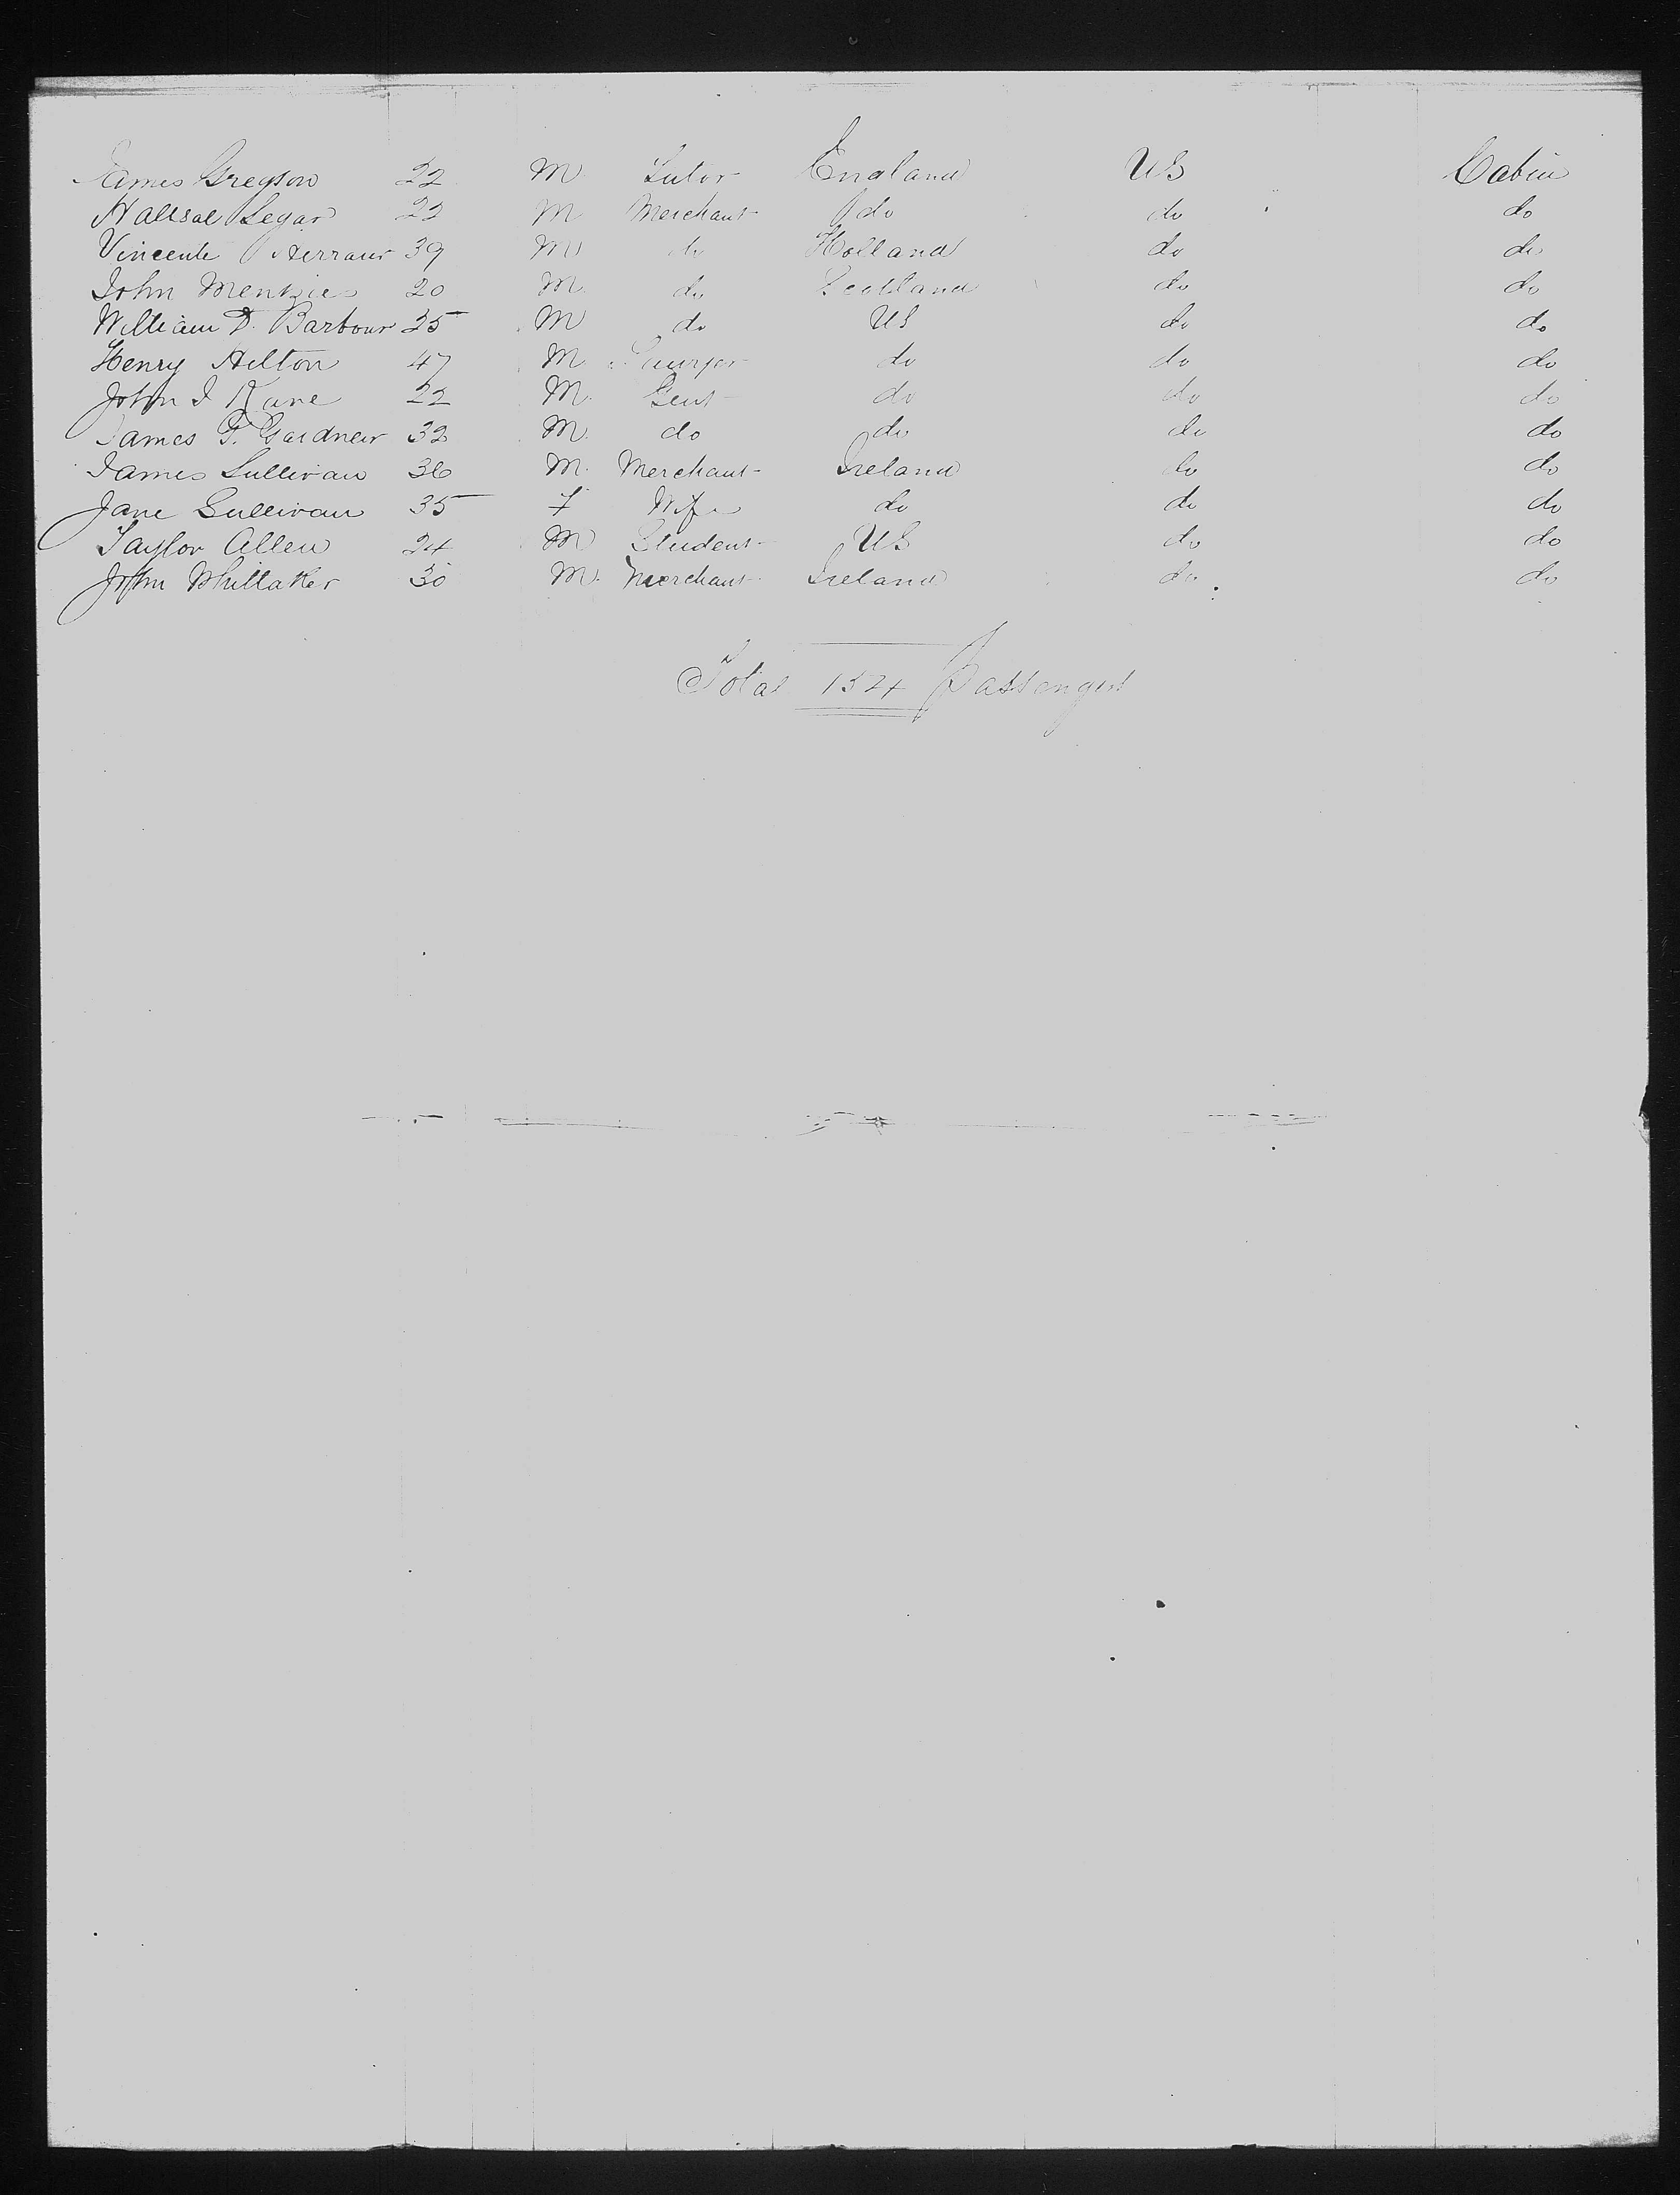 James Gregson 22 M Tutor England US Cabin
Hallsal Segar 22 M Merchant do do do
Vincente 39 M do Holland do do
John Menzies 20 M do Scotland do do
William D. Barbour 25 M do US do do
Henry Hilton 47 M Lawyer do do do
John I Kane 22 M Gent do do do
James P. Gardner 32 M do do do do
James Sullivan 36 M Merchant Ireland do do
Jane Sullivan 35 F Wife do do do
Taylor Allen 24 M Student US do do
John Whittaker 30 M Merchant Ireland do do
Total 1324 Passengers